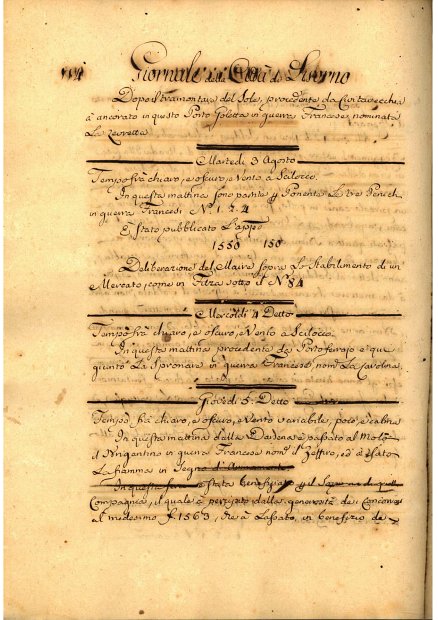 Giornale della Città di Livorno
Dopo il tramontare del Sole, procedente da Civitavecchia
è ancorato in questo Porto Goletta in guerra Francese, nominata
La
Martedì 3 Agosto
Tempo frà chiaro, e oscuro, e Vento a Scilocco.
In questa mattina sono partite p Ponente Le tre Penich
in guerra Francesi N. 1. 2. 4
È stato pubblicato L'appo
1550 150
Deliberazione del Maire sopra Lo Stabilimento di un
Mercato, come in Filza sotto il N. 84
Mercoldì 4 Detto
Tempo frà chiaro, e oscuro, e Vento a Scilocco
In questa mattina procedente da Portoferrajo è quì
giunto La Speronara in guerra Francese, nom. La Carolina
Giovedì 5. Detto
Tempo frà chiaro, e oscuro, e Vento variabile, poco, e calma
In questa mattina dalla Darsena è passato al Molo
il Brigantino in guerra Francese nom. il Zeffiro, ed è stato
La fiamma in Segno d'Armamento
In questa è stata benefiziato il di quella
Compagnia, il quale à percipito dalla generosità de Concorrenti
al medesimo £ 1563, che à Lassato, in benefizio, de